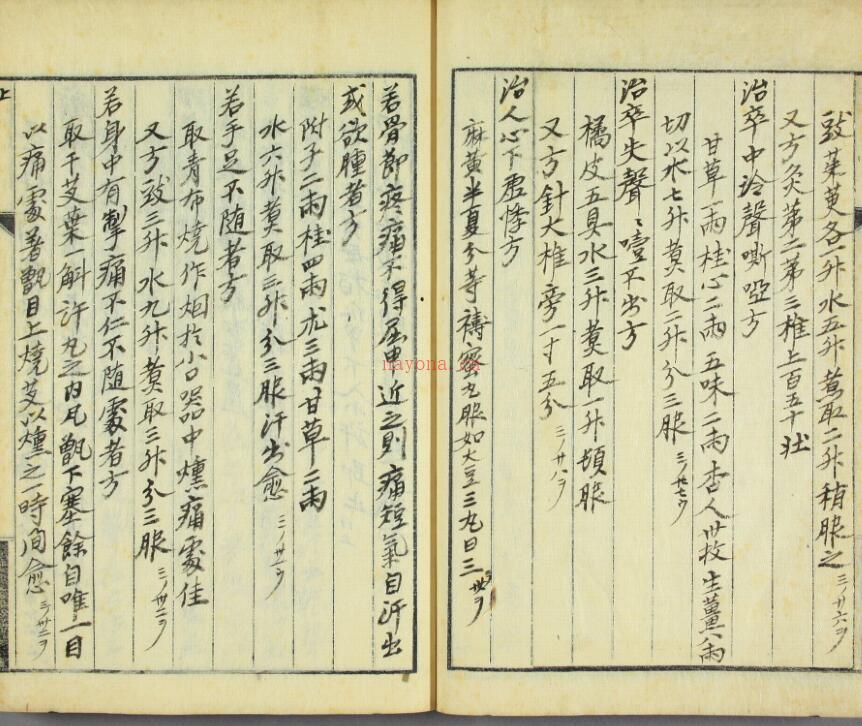 豉茱萸各一升水五升煮取二升稍服之 三ノ廿六ヲ
又方灸第二第三椎上百五十壯
治卒中冷聲嘶啞方
甘草一兩桂心二兩五味二兩杏人卅枚生薑八兩
切以水七升煑取二升分三服 三ノ廿七ウ
治卒失聲〻噎不出方
橘皮五具水三升煑取一升頓服
又方針大椎旁一寸五分 三ノ廿八ヲ
治人心下虛悸方
麻黃半夏分等擣蜜丸服如大豆三丸日三 卅ヲ
若骨節疼痛不得屈申近之則痛短氣自汗出
或欲腫者方
附子二兩桂四兩朮三兩甘草二兩
水六升煑取三升分三服汗出愈 三ノ廿一ウ
若手足不随者方
取青布燒作烟於小口器中燻痛處佳
又方豉三升水九升煑取三升分三服 三ノ廿二ヲ
若身中有掣痛不仁不随處者方
取干艾葉一斛許丸之內瓦甑下塞餘目唯一目
以痛處著甑目上燒艾以燻之一時間愈 三ノ廿二ヲ
上
nayona.cn